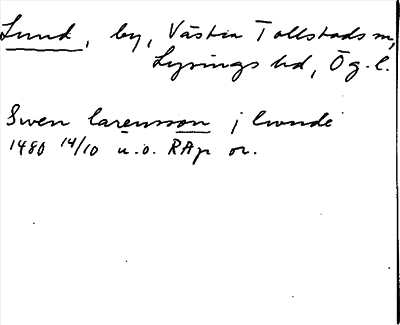 Lund, by, Västra Tollstads sn,
Lysings hd, Ög. l.
Swen larensson j lwnde
1480 14/10 u.o. RAp or.